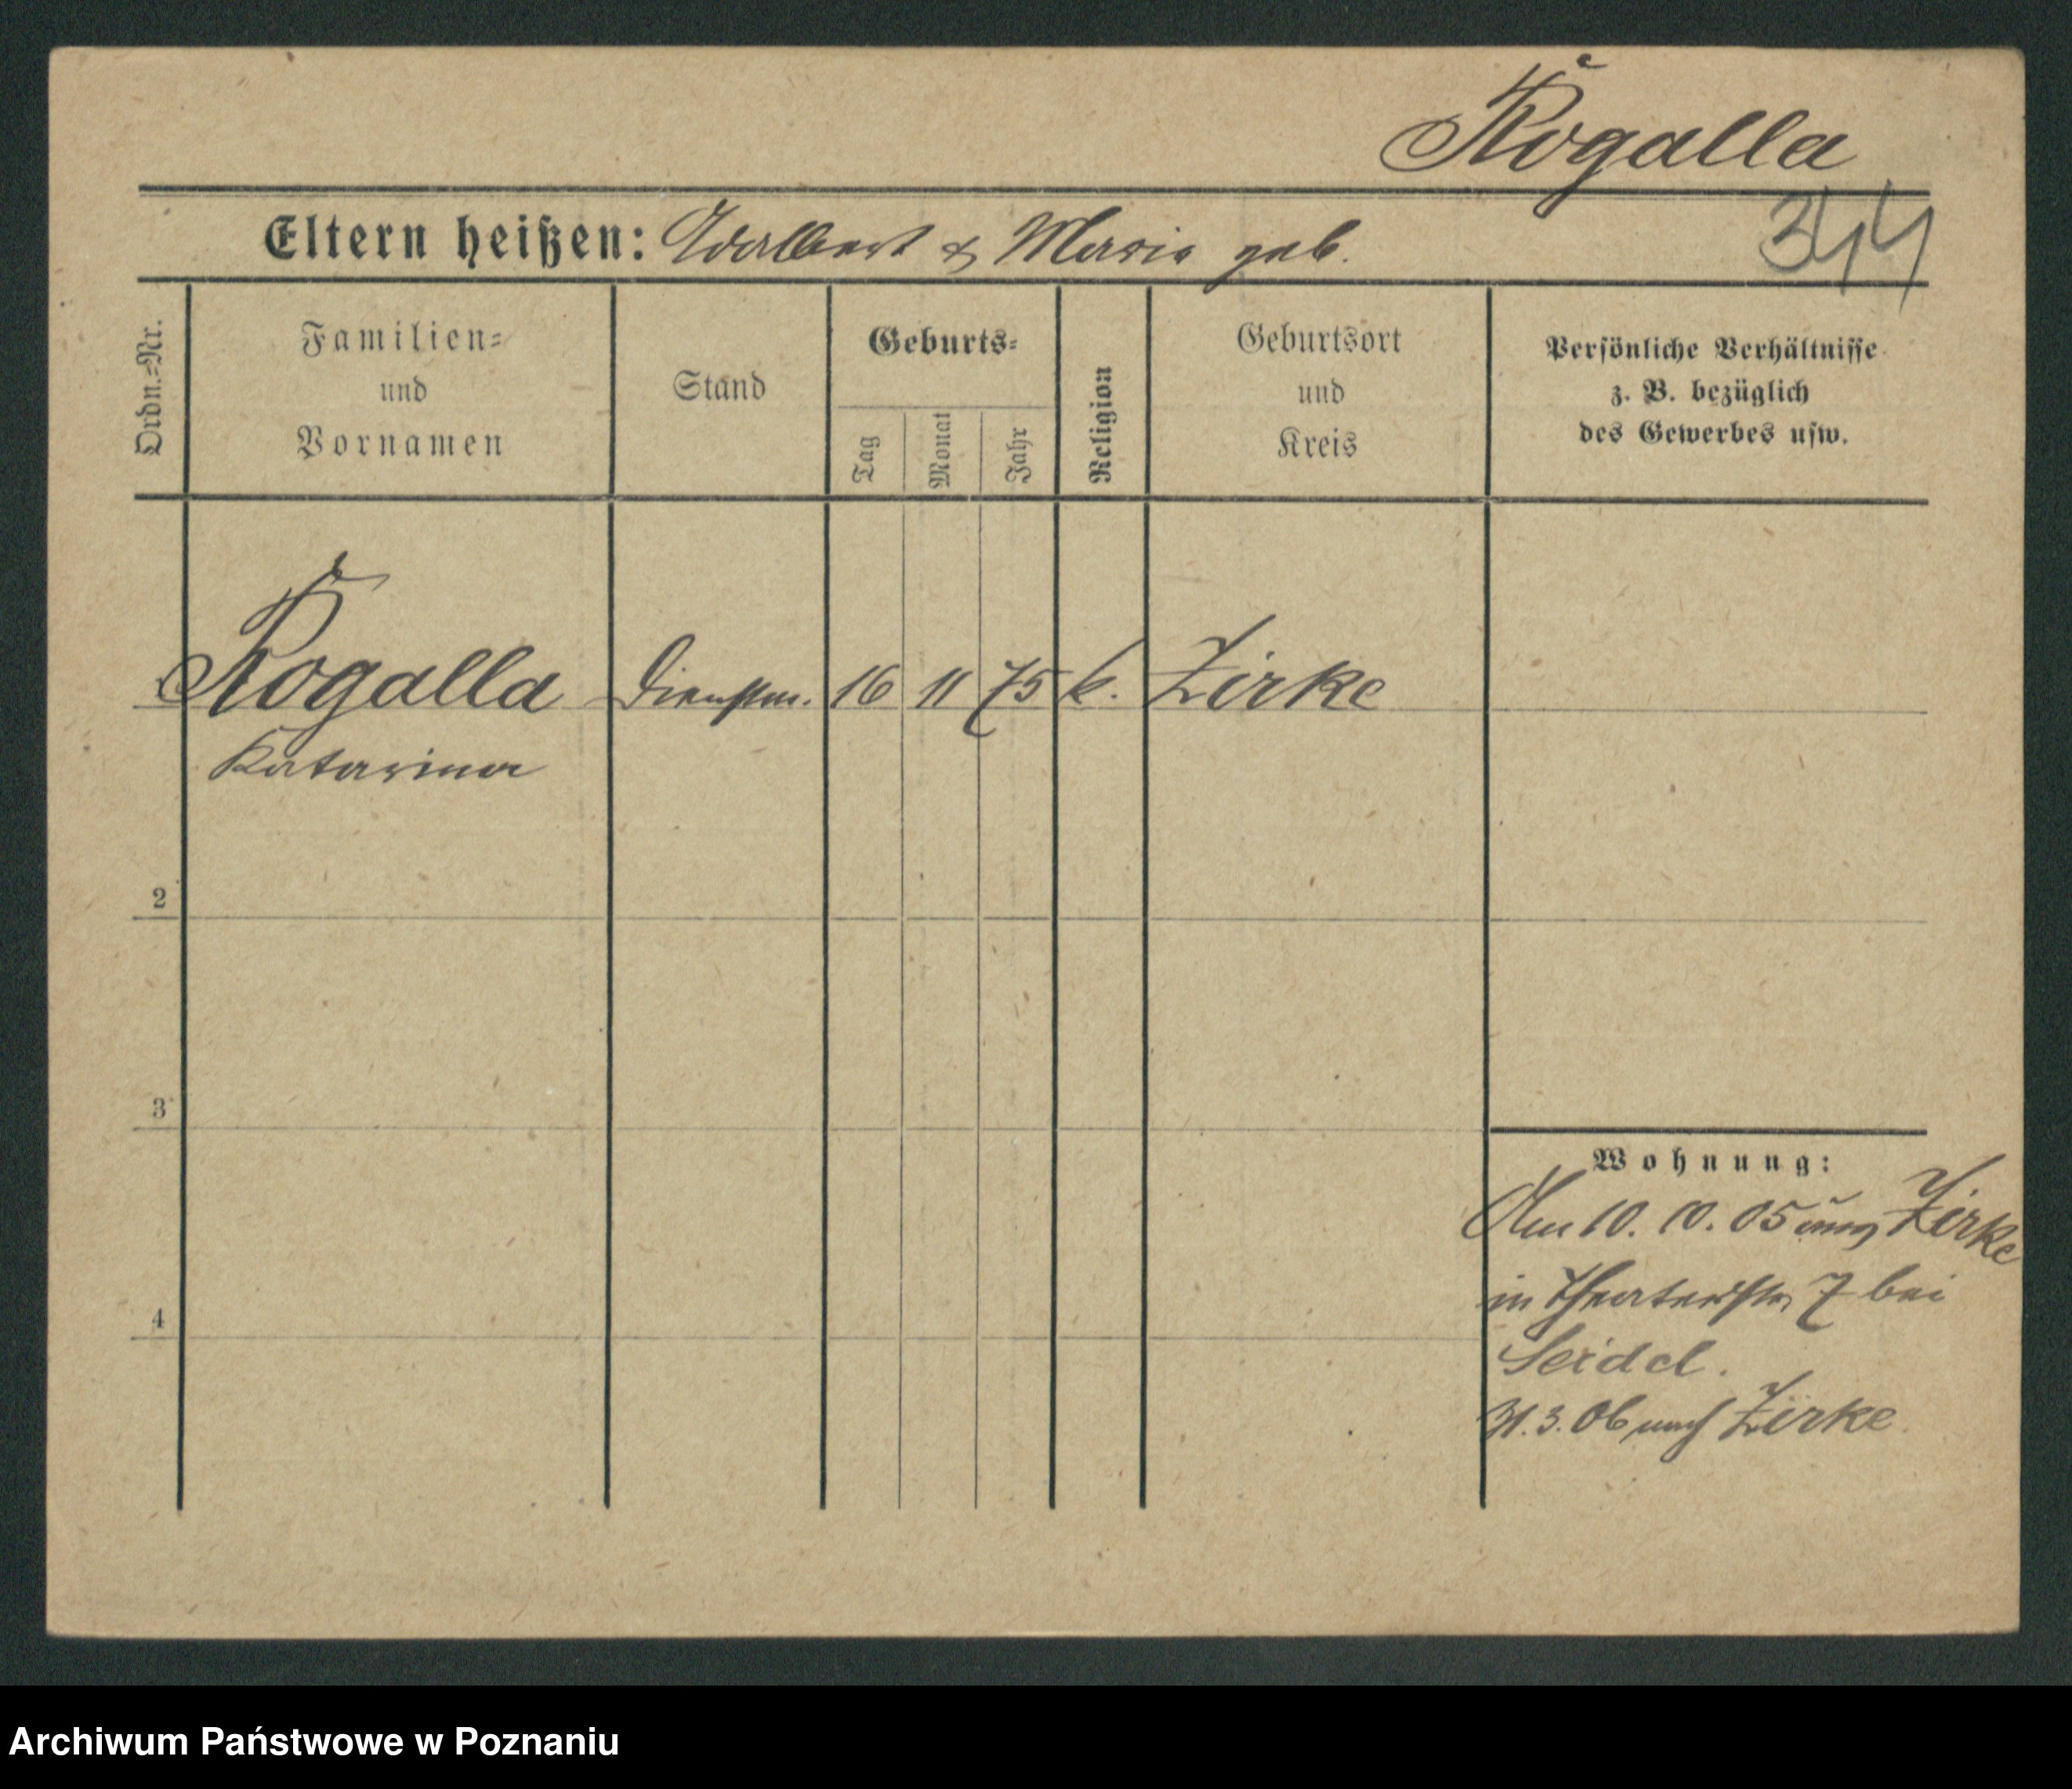 Rogalla
344
Eltern heißen: Adalbert & Maria geb.
Ordn.-Nr.
Familien-
und
Vornamen
Stand
Geburts-
Tag
Monat
Jahr
Religion
Geburtsort
und
Kreis
Persönliche Verhältnisse
z. B. bezüglich
des Gewerbes usw.
Rogalla Dienstm. 16 11 75 k. Zirke
Katarina
2
3
4
Wohnung:
Am 10. 10. 05 Zirke
in Theaterstr 7 bei
Seidel.
31. 3. 06 nach Zirke
Archiwum Państwowe w Poznaniu